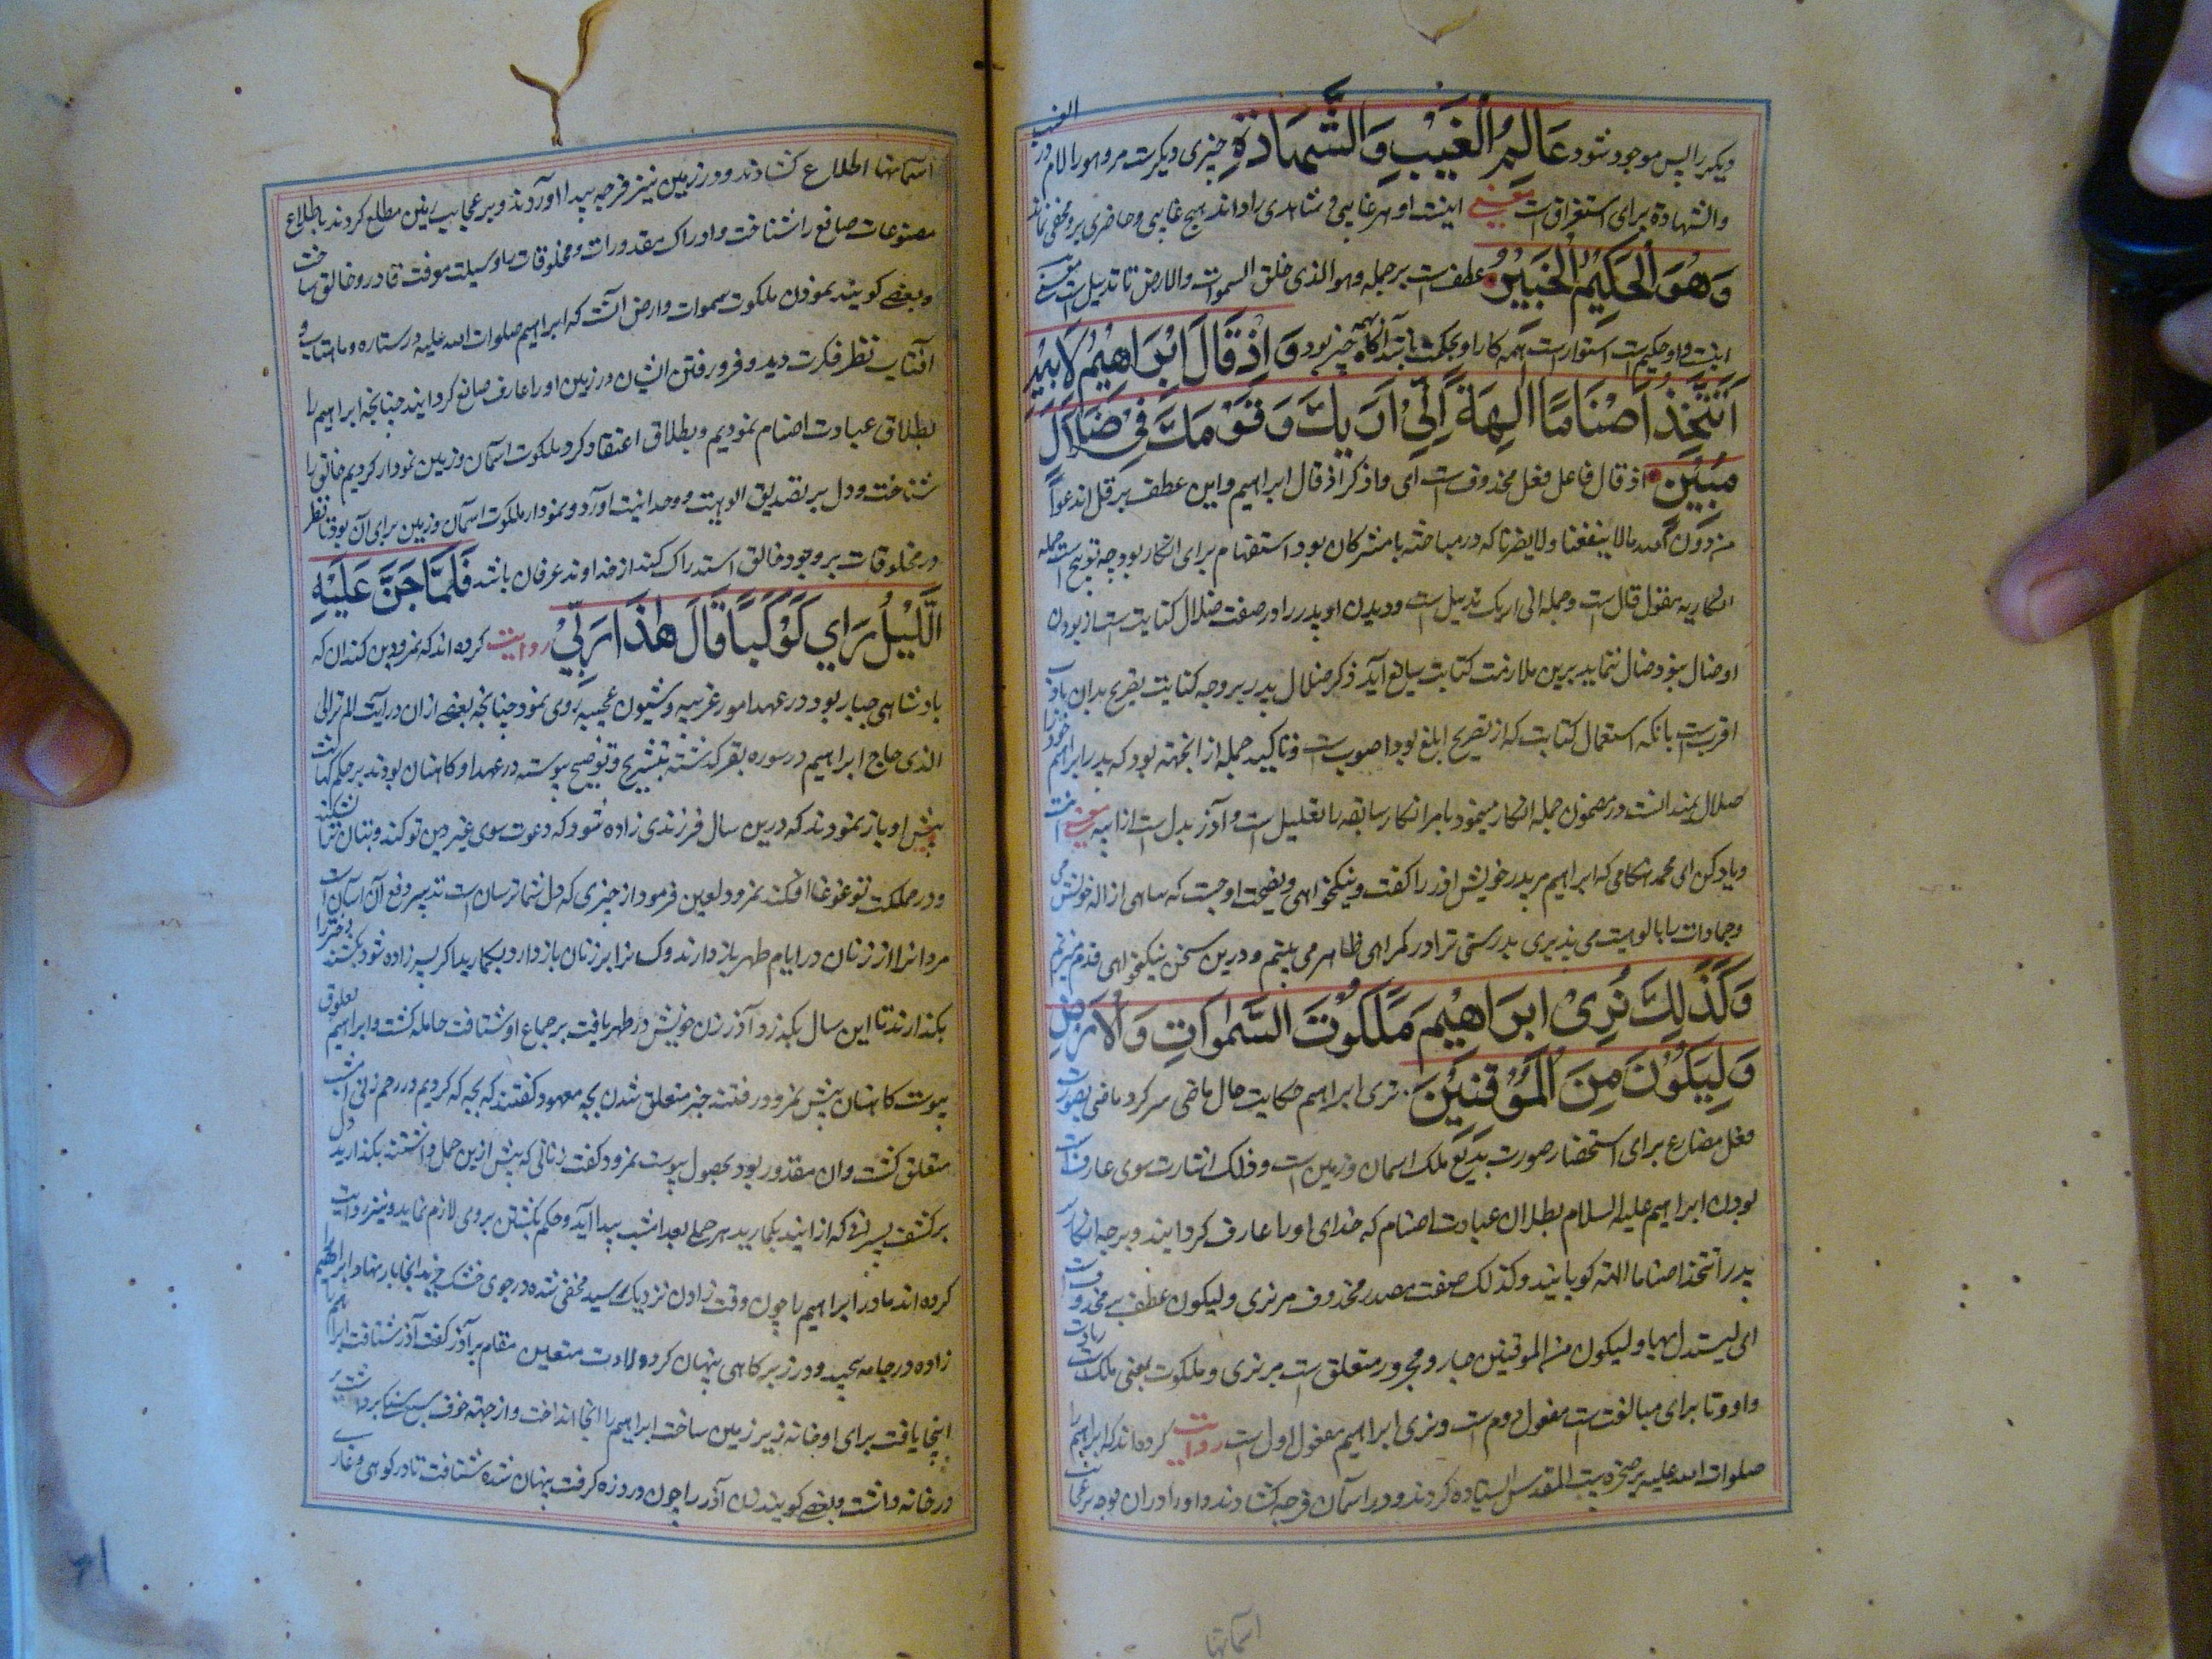 دیکر را پس موجود شود عَالِمُ الْغَیْبِ وَالشَّهَادَةِ چیزی دیکرست مر وهو را لام در الغیب
والشهادة برای استغراق است یعنے اینست او هر غایبی و شاهدی را داند هیچ غایبی و حاضری برو مخفی نماند
وَهُوَ الْحَکِیْمُ الْخَبِیْرُ عطف است بر جمله وهو الذی خلق السموات والارض تا تذییل است یعنے
اینست و او حکیم است استوار است همه کار او بحکمت باشد آکاه خبیر بود وَاِذْ قَالَ اِبْرَاهِیْمُ لِاَبِیْهِ
اَتَتَّخِذُ اَصْنَامًا اٰلِهَةً اِنِّیْ اَرٰیكَ وَقَوْمَكَ فِیْ ضَلَالٍ
مُّبِیْنٍ اذ قال فاعل فعل محذوف است ای واذکر اذ قال ابراهیم و این عطف بر قل اندعوا
من دون الله مالا ینفعنا ولا یضرنا که در مباحثه با مشرکان بود استفهام برای انکار بود وجه توبیخ است جمله
انکاریه مقول قال است و جمله انی اریك تذییل است و دیدن او پدر را در صفت ضلال کنایت است از بودن
او ضال بنود ضال ننماید برین ملازمت کنایت سایغ آید ذکر ضلال پدر بر وجه کنایت بصریح بدان
اقرب است بانکه استعمال کنایت که از تصریح ابلغ بود اصوب است و تاکید جمله از انجهته بود که پدر ابراهیم
ضلال نمیدانست در مضمون جمله انکار مینمود یا مر انکار سابقه را تعلیل است و آذر بدل است از ابیه یعنے
و یاد کن ای محمد هنکامی که ابراهیم مر پدر خویش اذر را کفت و نیکخواهی و نصیحت او جست که ساهی از اله خویش می
و جمادات را بالوهیت می پذیری بدرستی ترا در کمراهی ظاهر می بینم و درین سخن نیکخواهی قدم میزنم
وَکَذٰلِكَ نُرِیْ اِبْرَاهِیْمَ مَلَکُوْتَ السَّمٰوَاتِ وَالْاَرْضِ
وَلِیَکُوْنَ مِنَ الْمُوْقِنِیْنَ نری ابراهیم حکایت حال ماضی سر کرد ماضی بصورت
فعل مضارع برای استحضار صورت بدیع ملك اسمان و زمین است و ذلك اشارت سوی عارف
بودن ابراهیم علیه السلام بطلان عبادت اصنام که خدای او را عارف کردانید و بر جه انکار
پدر اتتخذ اصناما الهة کویانید و کذلك صفت مصدر محذوف مر نری و لیکون عطف بر محذوف
ای لیستدل بها و لیکون من الموقنین جار و مجرور متعلق است مر نری و ملکوت بمعنی ملك است زیادت
واو و تا برای مبالغت است مفعول دوم است و نری ابراهیم مفعول اول است روایت کرده اند که ابراهیم را
صلوات الله علیه بر صخره بیت المقدس ایستاده کردند و در آسمان فرجه کشادند و او را دران بود بر عجائب
اسمانها
اسمانها اطلاع کشادند و در زمین نیز فرجه پیدا آوردند و بر عجایب زمین مطلع کردند باطلاع
مصنوعات صانع را شناخت و ادراك مقدورات و مخلوقات را وسیلت معرفت قادر و خالق ساخت
و بعضے کویند نمودن ملکوت سموات و ارض آنست که ابراهیم صلوات الله علیه در ستاره و ماهتاب و
آفتاب نظر فکرت دید و فرو رفتن ایشان در زمین او را عارف صانع کردانید چنانچه ابراهیم را
بطلان عبادت اصنام نمودیم و بطلاق اعتقاد کرد ملکوت آسمان و زمین نمودار کردیم خالق را
شناخت و دل بر تصدیق الوهیت و وحدانیت اورد و نمودار ملکوت اسمان و زمین برای آن بود تا نظر
در مخلوقات بر وجود خالق استدراك کند از خداوند عرفان باشد فَلَمَّا جَنَّ عَلَیْهِ
اللَّیْلُ رَاٰی کَوْکَبًا قَالَ هٰذَا رَبِّیْ روایت کرده اند که نمرود بن کنعان که
بادشاهی جبار بود در عهد امور غریبه و شیون عجیبه روی نمود چنانچه بعضے از ان در آیت الم تر الی
الذی حاج ابراهیم در سوره بقر کذشته بتشریح و توضیح پیوسته در عهد او کاهنان بودند بر حکم کهانت
پیش او باز نمودند که درین سال فرزندی زاده شود که دعوت سوی غیر دین تو کند و بتان شکند
و در مملکت تو غوغا افکند نمرود لعین فرمود از چیزی که دل شما ترسان است تدبیر دفع آن آسان است
مردانرا از زنان در ایام طهر باز دارند و کسانرا بر زنان باز دار و بکمارید اکر پسر زاده شود بکشند دختر را
بکذارند تا این سال بکذرد آذر زن خویش در طهر یافت بر جماع او شتافت حامله کشت و ابراهیم بعلوق
پیوست کاهنان پیش نمرود رفتند خبر متعلق شدن بچه معهود کفتند که بچه که کردیم در رحم زنی امشب
متعلق کشت و ان مقدور بود بحصول پیوست نمرود کفت زنانی که پیش ازین حمل داشتند بکذارید دل
بر کشف پسرانے که از ایند بکمارید هر حملے بعد امشب پیدا آید و حکم بکشتن بروی لازم نماید و نیز روایت
کرده اند مادر ابراهیم را چون وقت زادن نزدیك رسید مخفی شده در جوی خشك خزید انجا بار نهاد ابراهیم را
زاده در جامه پیچید و در زیر کاهی پنهان کرد و ولادت متعین مقام بر آذر کفت آذر شتافت ابراهیم را
اینجا یافت برای او خانه زیر زمین ساخت ابراهیم را انجا انداخت و از جهته خوف سبع سنکی بر در
در خانه داشت و بعضے کویند زن آذر را چون دروزه کرفت پنهان شده شتافت تا در کوهی و غاری